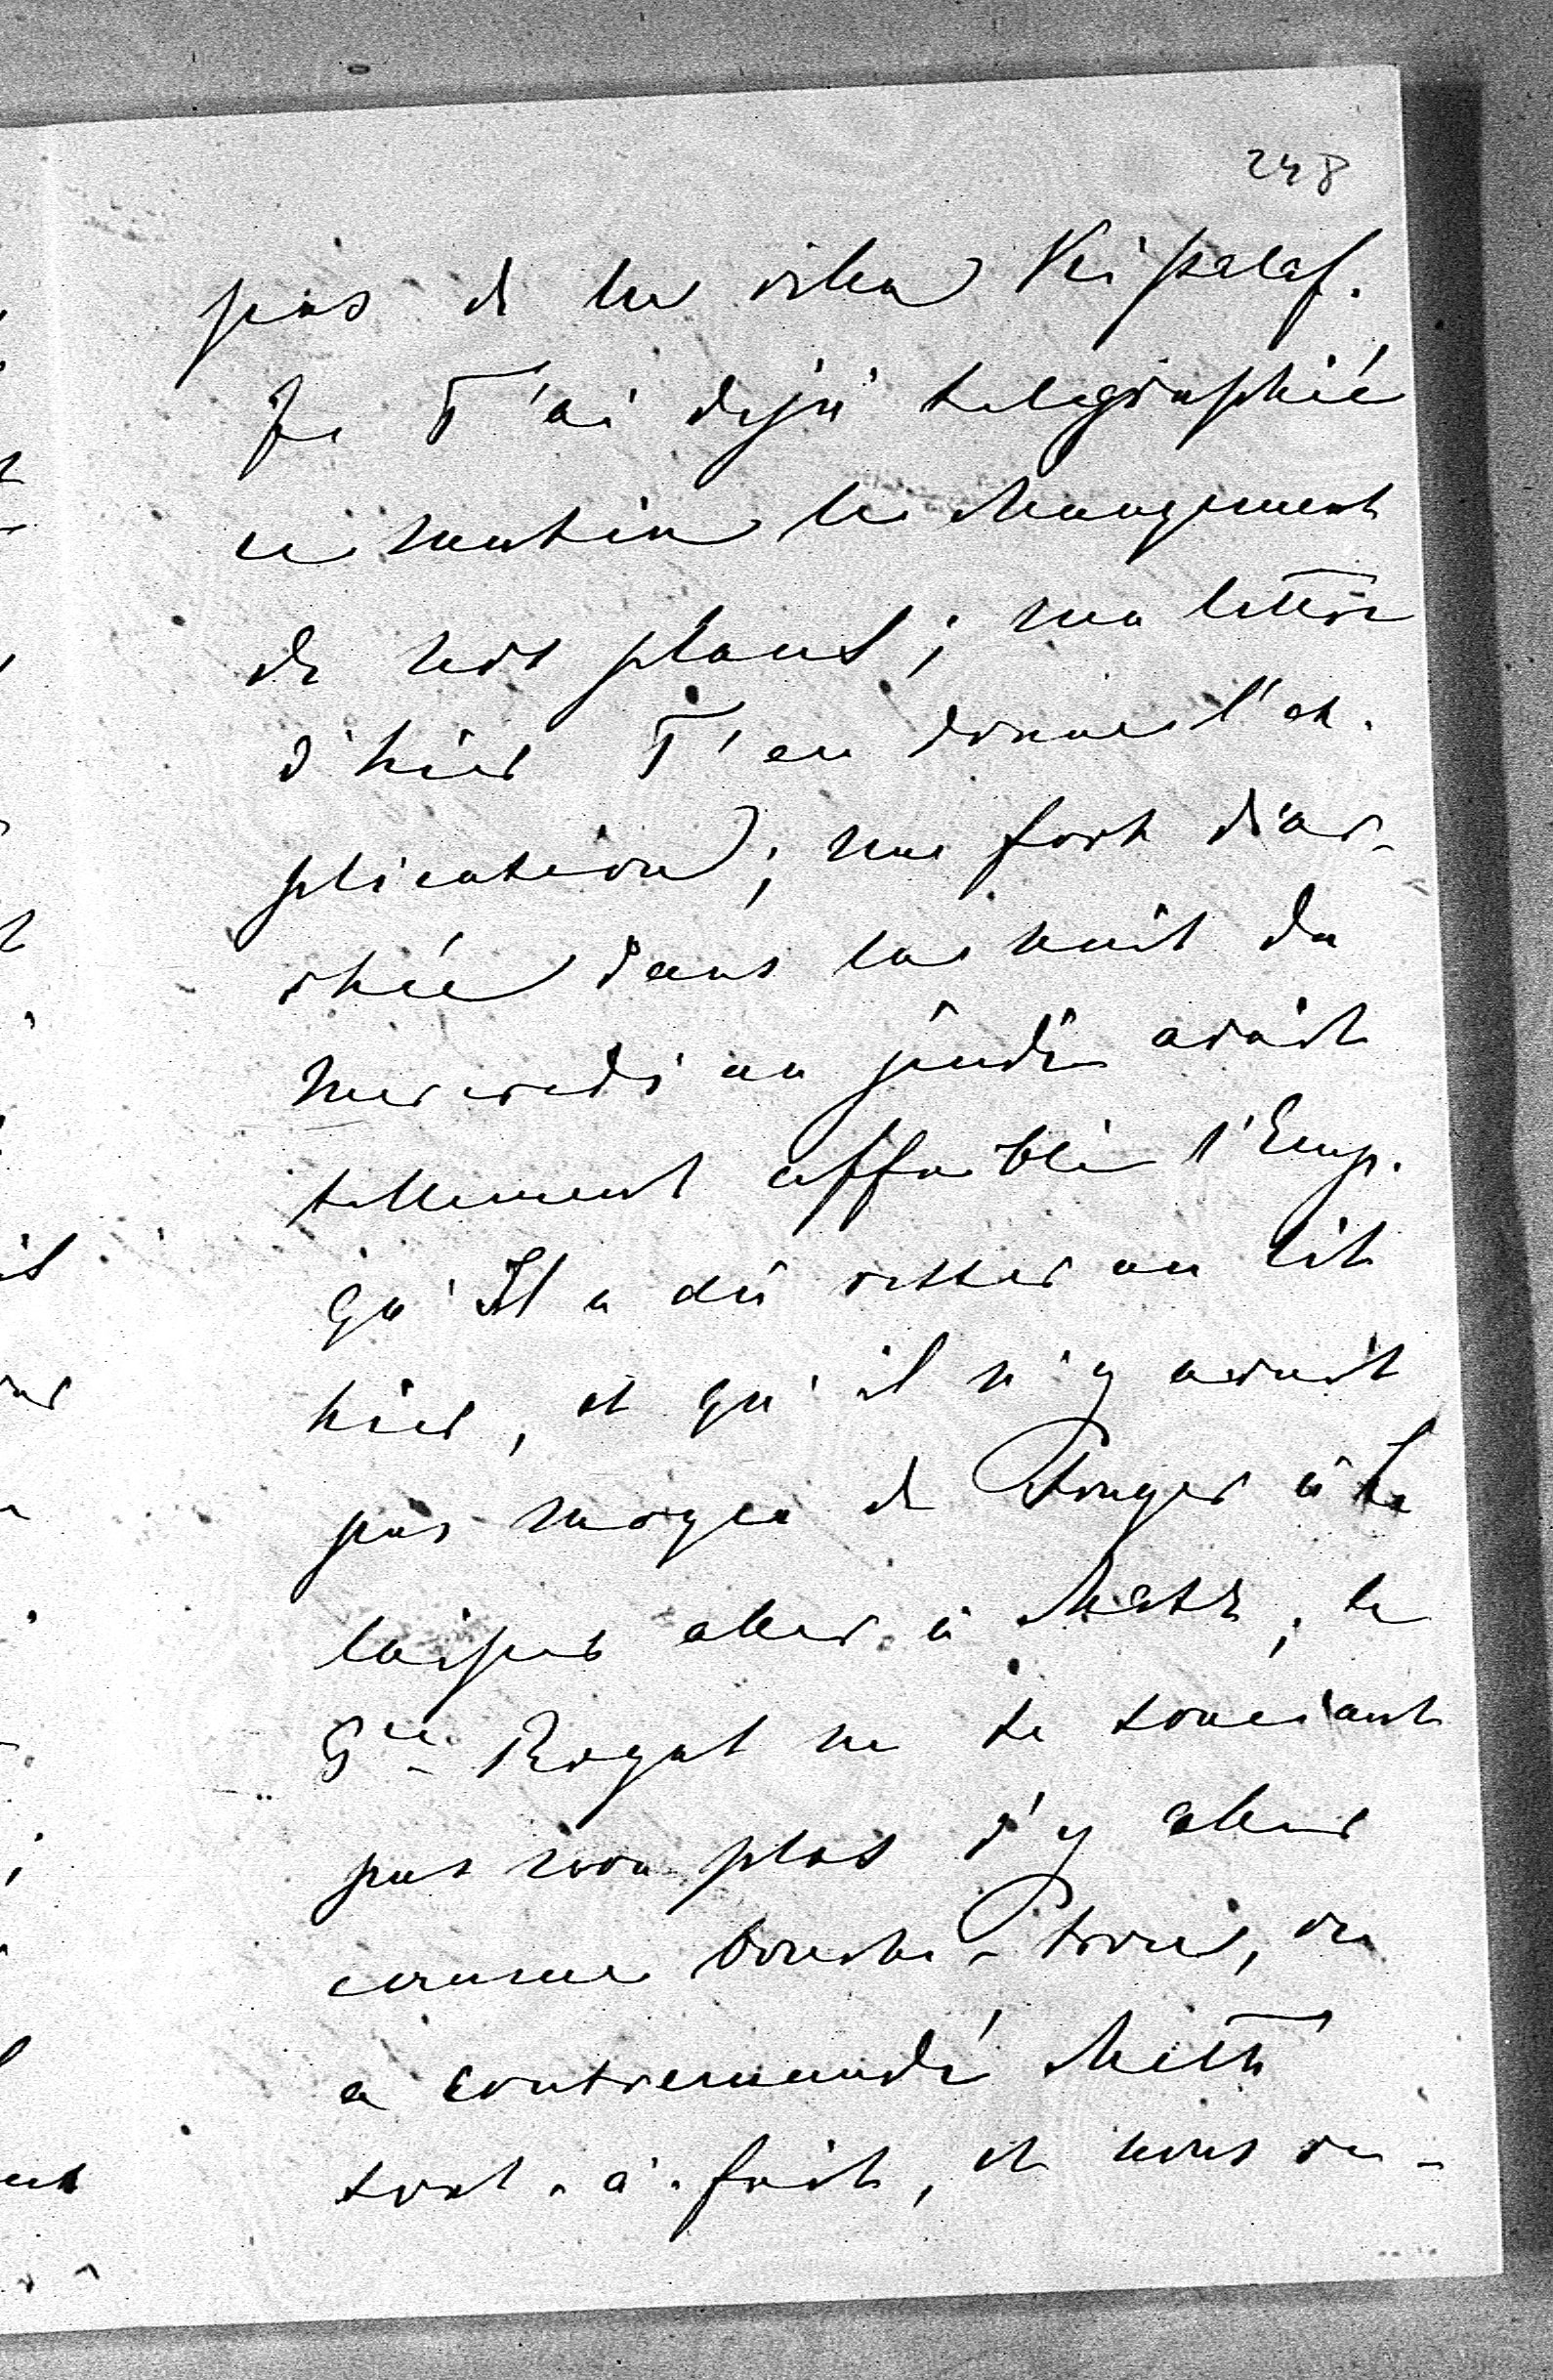 248
pas de la villa Keisselef.
Je T'ai dejà telegraphié
ce matin le changement
de nos plans; ma lettre
d'hier T'en donne l'ex-
plication; une forte diar-
rhée dans la nuit du
mercredi au jeudi avait
tellement affaibli l'Emp.
qu'Il a dû rester au lit
hier, et qu'il n'y avait
pas moyen de songer à Le
laisser aller à Metz; le
Pce Royal ne se souciant
pas non plus d'y aller
comme bouche-trou, on
a contremandé Metz
tout-à-fait, et nous re-